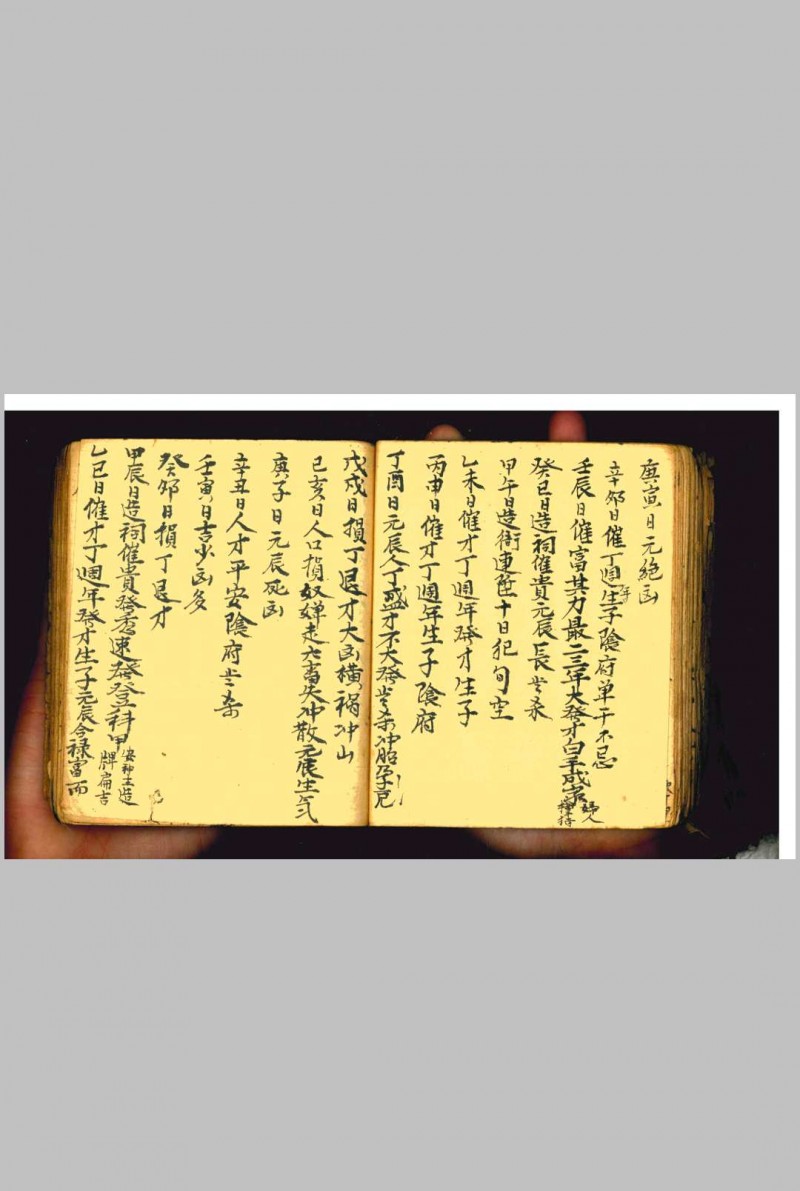 庚寅日元絕凶
辛卯日催丁週年生子陰府单干不忌
壬辰日催富其力最二三年大發才白手成家 婦人
癸巳日造祠催貴元辰長𠀋杀
甲午日造衙連 十日犯旬空
乙未日催才丁週年發才生子
丙申日催才丁週年生子陰府
丁酉日元辰人丁盛才不大發 杀冲胎孕
戊戌日損丁退才大凶橫禍冲山
己亥日人口損奴婢走六畜失冲散元辰生气
庚子日元辰死凶
辛丑日人才平安陰府 杀
壬寅日吉少凶多
癸卯日損丁退才
甲辰日造祠催貴發秀速發登科甲 安神主造牌扁吉
乙巳日催才丁週年發才生子元辰合祿富而